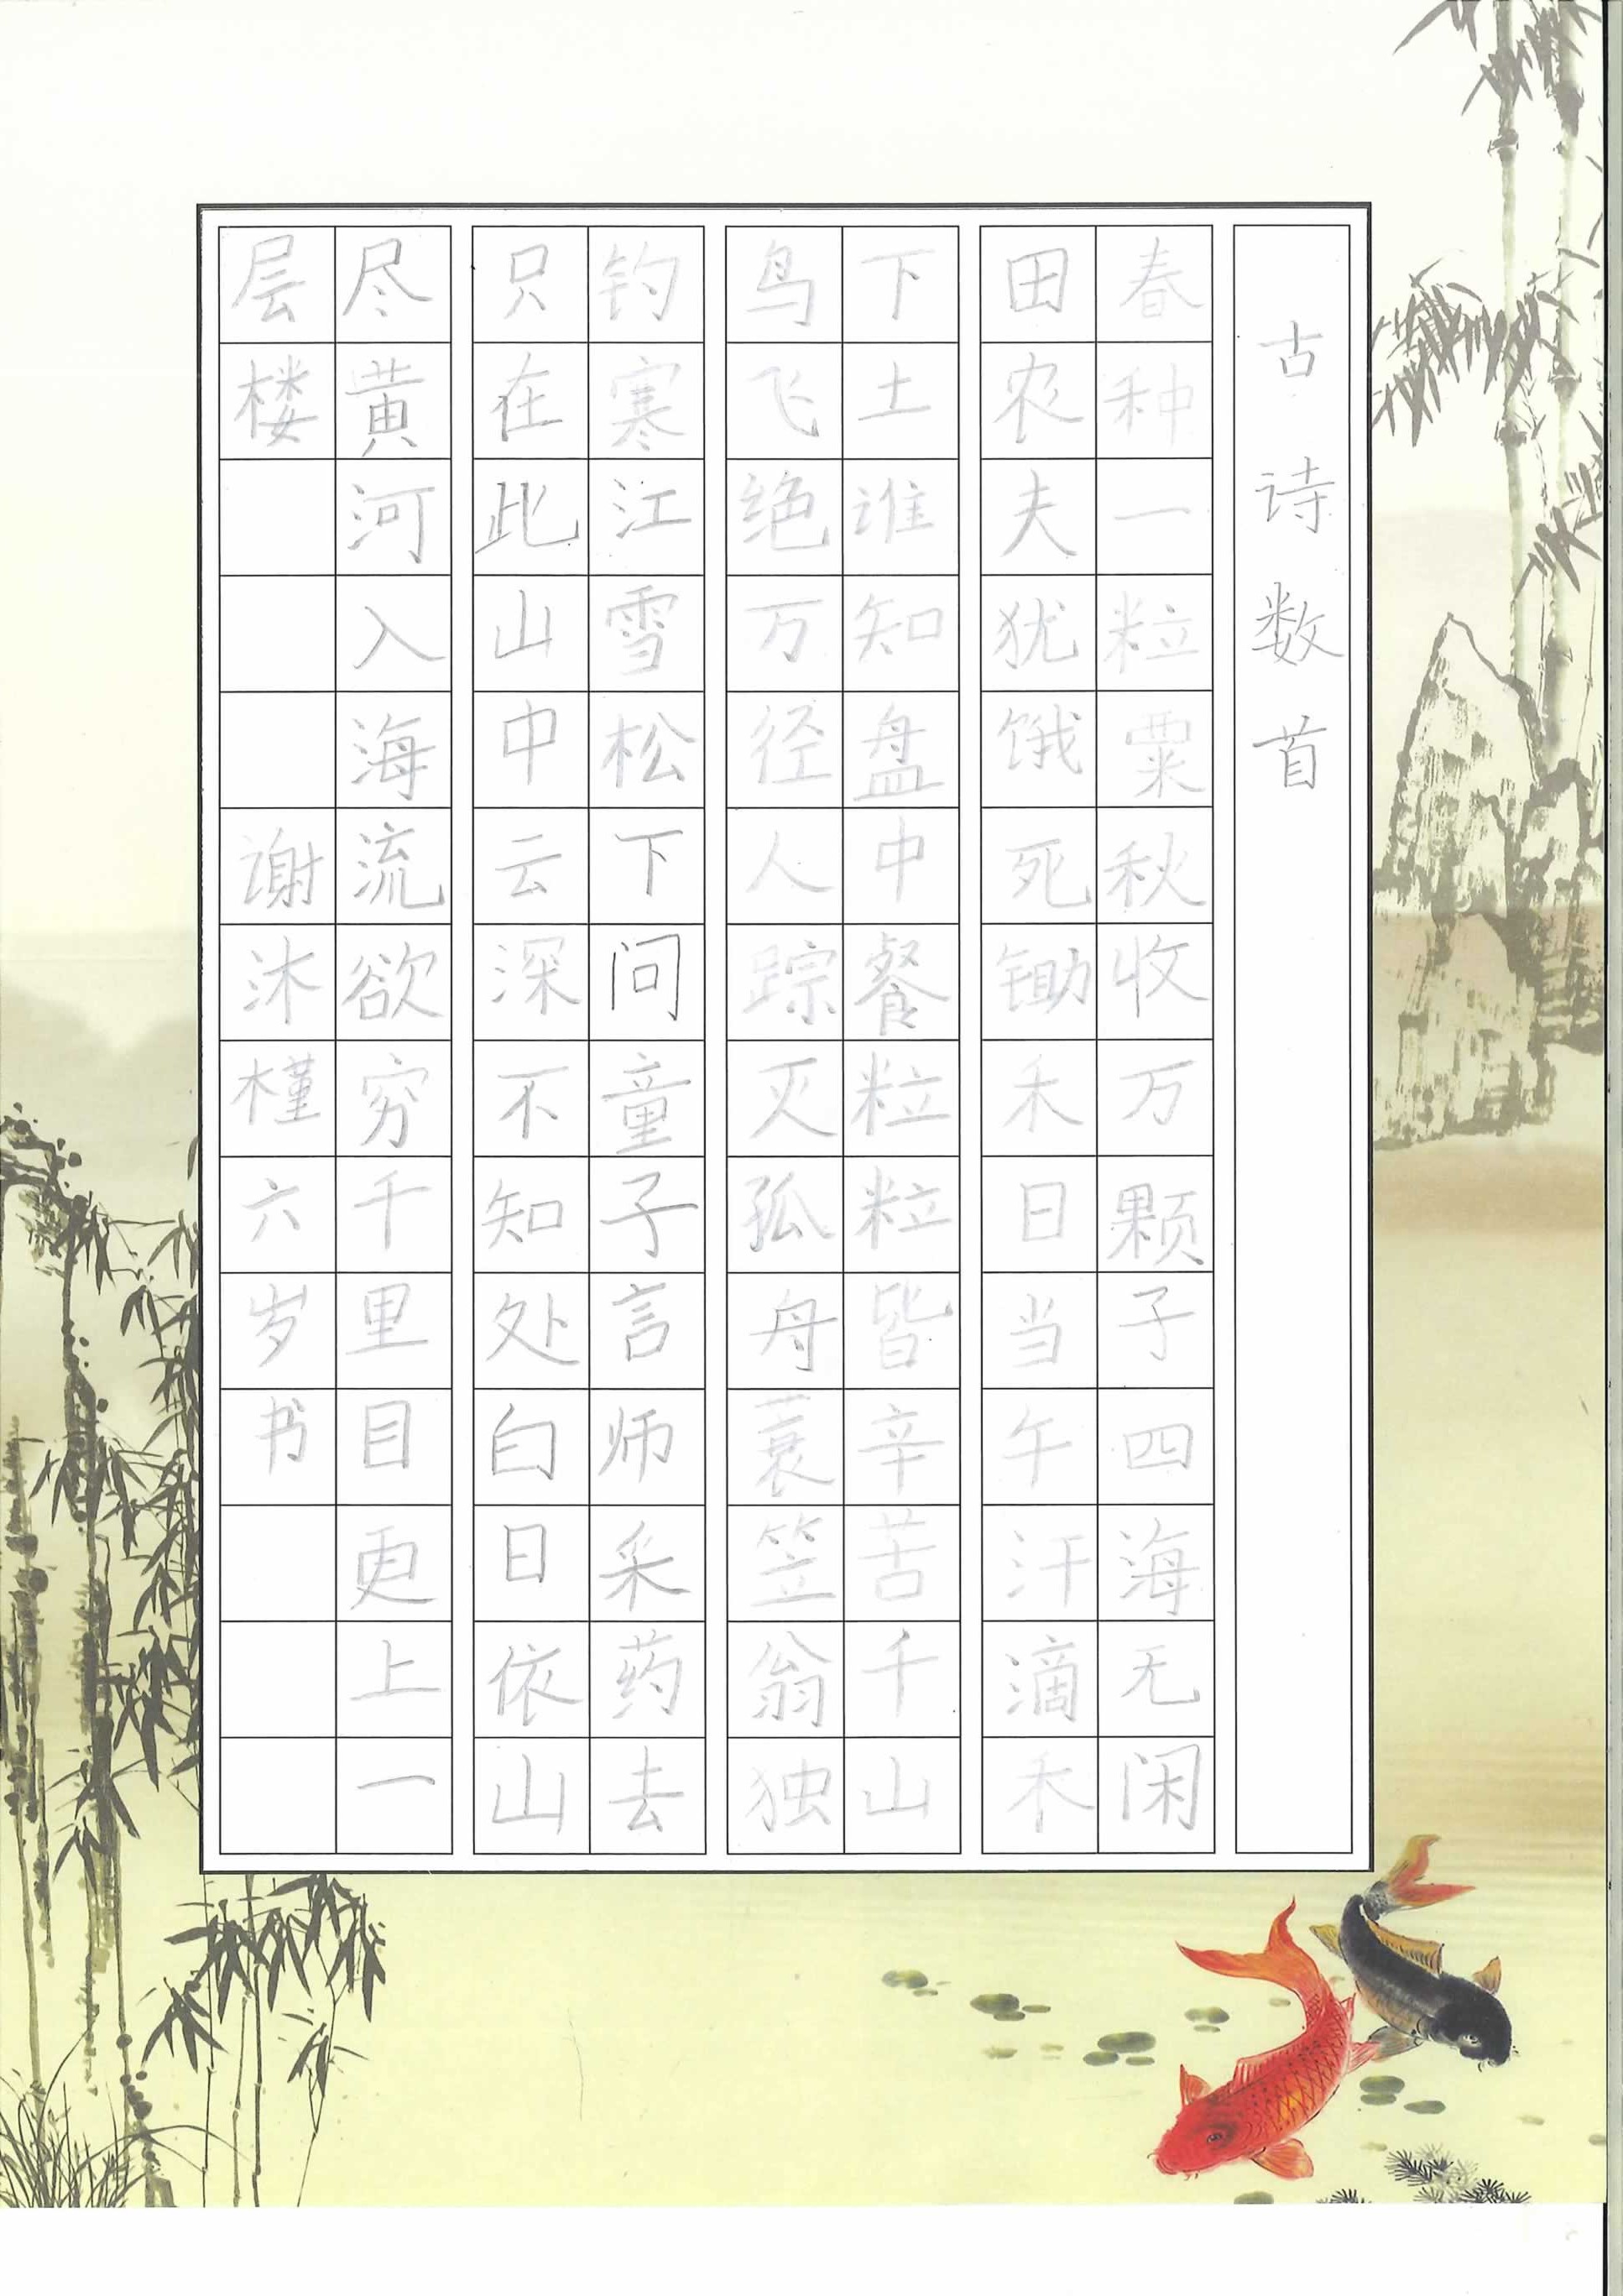 古诗数首
春种一粒粟秋收万颗子四海无闲
田农夫犹饿死锄禾日当午汗滴禾
下土谁知盘中餐粒粒皆辛苦千山
鸟飞绝万径人踪灭孤舟蓑笠翁独
钓寒江雪松下问童子言师采药去
只在此山中云深不知处白日依山
尽黄河入海流欲穷千里目更上一
层楼 谢沐槿六岁书